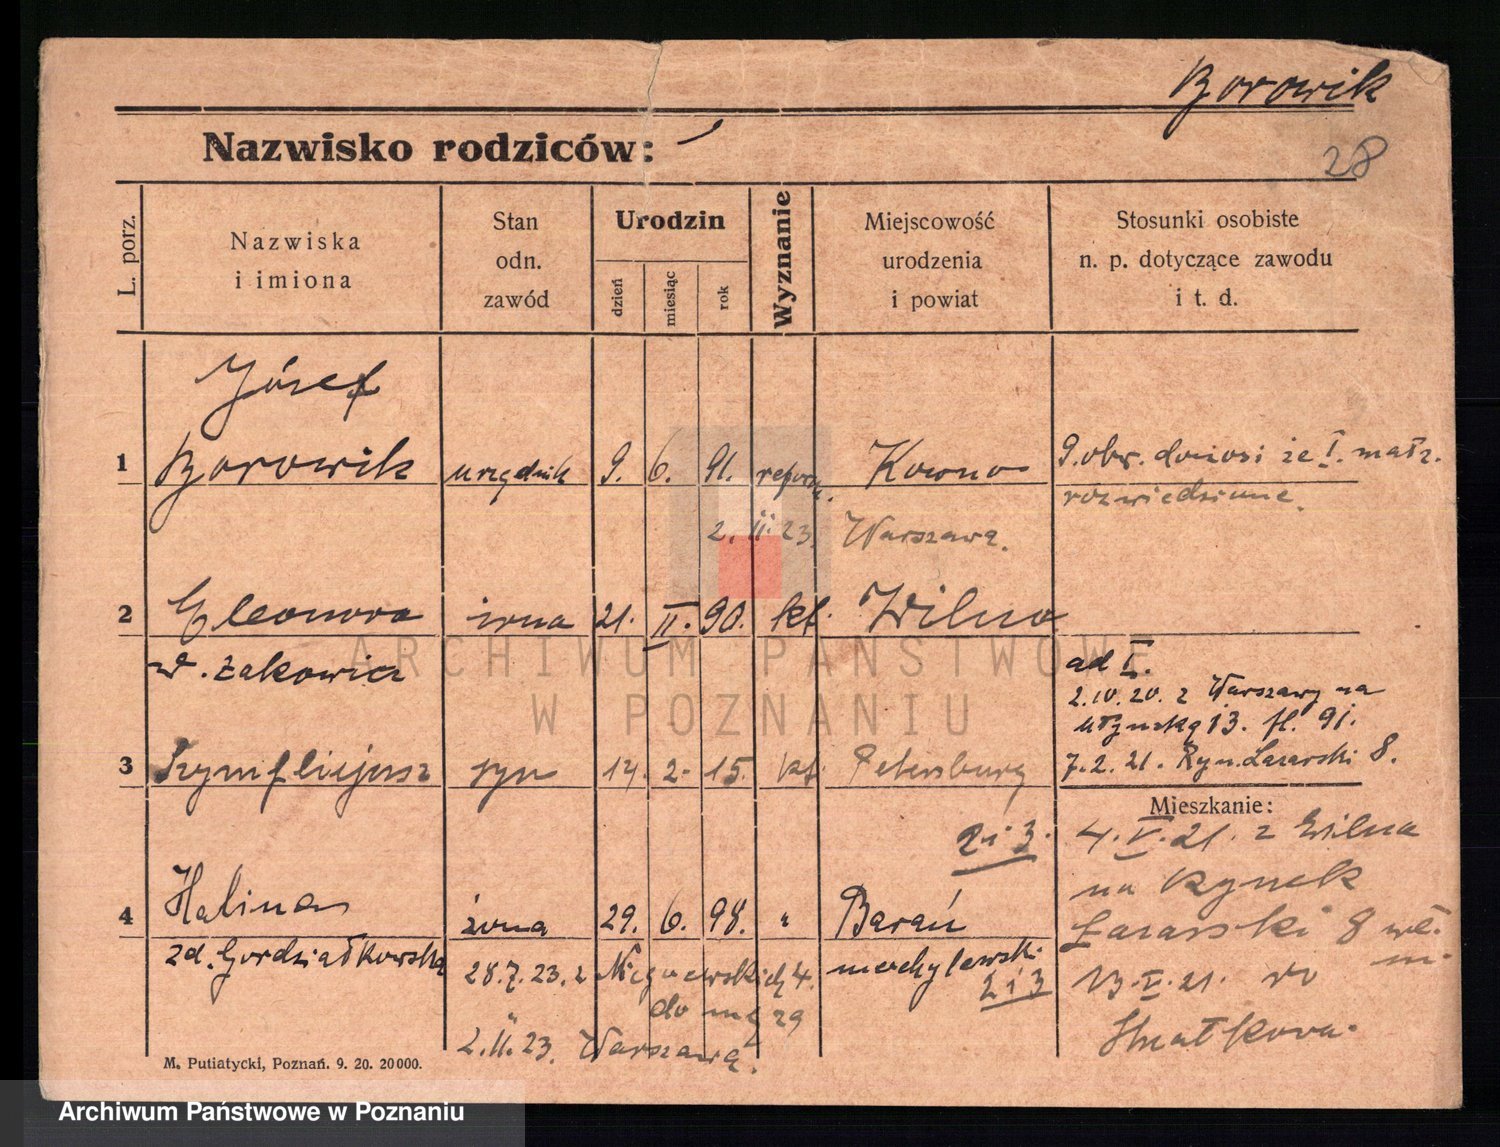 Borowik
28
Nazwisko rodziców:
L. porz.
Nazwiska
i imiona
Stan
odn.
zawód
Urodzin
dzień
miesiąc
rok
Wyznanie
Miejscowość
urodzenia
i powiat
Stosunki osobiste
n. p. dotyczące zawodu
i t. d.
Józef
1 Borowik urzędnik 9. 6. 91. reform. Kowno
9. obw. donosi że I. małż.
rozwiedzione.
2. II. 23. Warszawa.
2 Eleonora żona 21. II. 90. kf. Wilno
z d. Żakowicz
ad I.
2.10.20. z Warszawy na
13. fl. 91.
7.2.21. Ryn. Łazarski 8.
3 syn 14. 2. 15. kf. Petersburg
Mieszkanie:
2 i 3.
4. V. 21. z Wilna
na Rynek
Łazarski 8
13. V. 21. do
4 Halina żona 29. 6. 98. " Barań
zd. Gordziałkowska
28.7.23. z Niegolewskich 4.
do 29
2 i 3
2. II. 23. Warszawa.
M. Putiatycki, Poznań. 9. 20. 20000.
ARCHIWUM PAŃSTWOWE
W POZNANIU
Archiwum Państwowe w Poznaniu